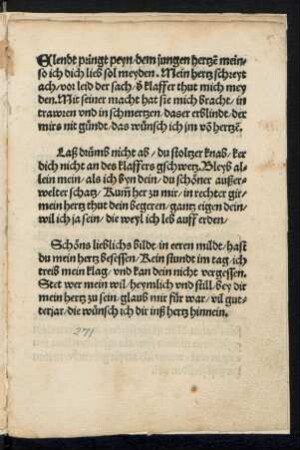 Elendt pringt peyn, dem jungen hertzē mein/
so ich dich lieb sol meyden. Mein hertz schreyt
ach/ vor leid der sach/ ð klaffer thut mich mey
den. Mit seiner macht hat sie mich bracht/ in
trawren vnd in schmertzen. das er erblindt. der
mirs nit gündt. das wünsch ich im vō hertzē.
Laß drūms nicht ab/ du stoltzer knab/ ker
dich nicht an des klaffers gschwetz. Bleyb al
lein mein/ als ich byn dein/ du schöner außer
welter schatz/ Kum her zu mir/ in rechter gir/
mein hertz thut dein begeren/ gantz eigen dein/
wil ich ja sein/ die weyl ich leb auff erden/
Schöns lieblichs bilde. in eeren milde/ hast
du mein hertz besessen/ Kein stund im tag. ich
treib mein klag/ vnd kan dein nicht vergessen.
Stet wer mein wil/ heymlich vnd still. bey dir
mein hertz zu sein. glaub mir für war/ vil gut-
ter jar/ die wünsch ich dir inß hertz hinnein.
271